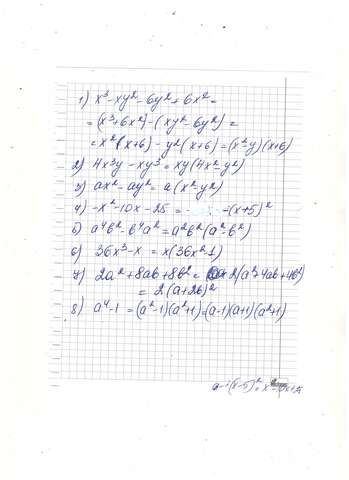 1) x³-xy²-6y²+6x²=
=(x³+6x²)-(xy²-6y²)=
=x²(x+6)-y²(x+6)=(x²-y)(x+6)
2) 4x³y-xy³=xy(4x²-y²)
3) ax²-ay²=a(x²-y²)
4) -x²-10x-25= -(x+5)²
5) a⁴b²-b⁴a²=a²b²(a²-b²)
6) 36x³-x=x(36x²-1)
7) 2a²+8ab+8b²= 2(a²+4ab+4b²)
= 2(a+2b)²
8) a⁴-1=(a²-1)(a²+1)=(a-1)(a+1)(a²+1)